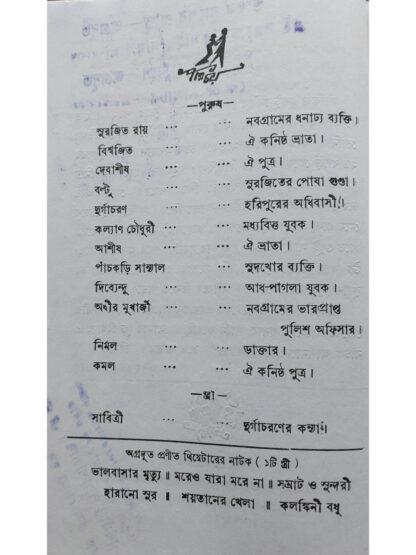 পরিচয়
—পুরুষ—
সুরজিত রায় ... ... নবগ্রামের ধনাঢ্য ব্যক্তি।
বিশ্বজিত ... ... ঐ কনিষ্ঠ ভ্রাতা।
দেবাশীষ ... ... ঐ পুত্র।
বল্টু ... ... সুরজিতের পোষা গুণ্ডা।
দুর্গাচরণ ... ... হরিপুরের অধিবাসী।
কল্যাণ চৌধুরী ... ... মধ্যবিত্ত যুবক।
আশীষ ... ... ঐ ভ্রাতা।
পাঁচকড়ি সান্তাল ... ... সুদখোর ব্যক্তি।
দিব্যেন্দু ... ... আধ-পাগলা যুবক।
অধীর মুখার্জী ... ... নবগ্রামের ভারপ্রাপ্ত
পুলিশ অফিসার।
নির্মল ... ... ডাক্তার।
কমল ... ... ঐ কনিষ্ঠ পুত্র।
—স্ত্রী—
সাবিত্রী ... ... দুর্গাচরণের কন্যা।
অগ্রদূত প্রণীত থিয়েটারের নাটক ( ১টি স্ত্রী )
ভালবাসার মৃত্যু ॥ মরেও যারা মরে না ॥ সম্রাট ও সুন্দরী
হারানো সুর ॥ শয়তানের খেলা ॥ কলঙ্কিনী বধূ